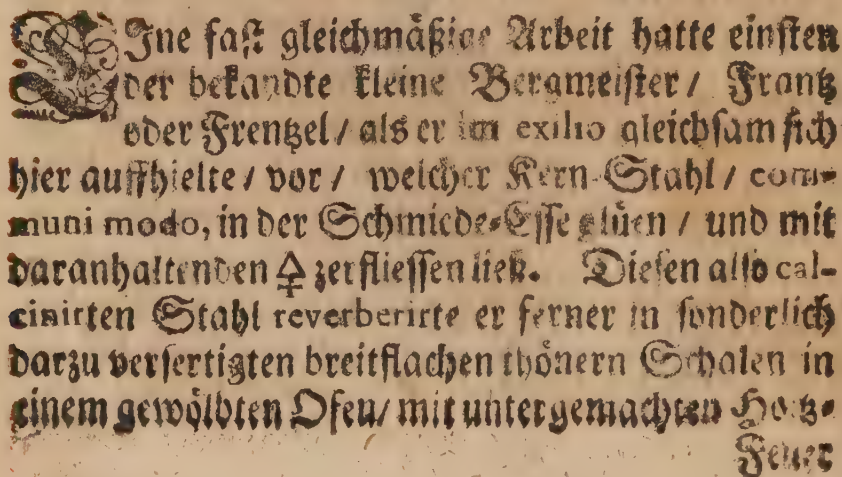 EIne faſt gleichmäßige Arbeit hatte einſten
der bekandte kleine Bergmeiſter / Frantz
oder Frentzel / als er im exilio gleichſam ſich
hier auffhielte / vor / welcher Kern-Stahl / com-
muni modo, in der Schmiede-Eſſe glüen / und mit
daranhaltenden 🜍 zerflieſſen ließ. Dieſen alſo cal-
cinirten Stahl reverberirte er ferner in ſonderlich
darzu verfertigten breitflachen thönern Schalen in
einem gewölbten Ofen / mit untergemachten Holtz-
Feuer